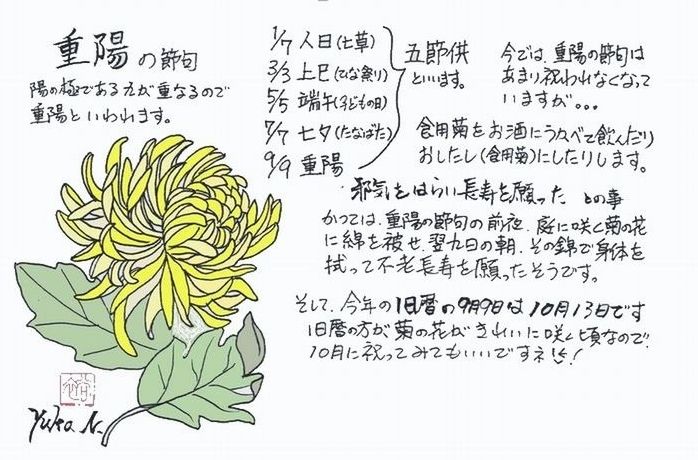 重陽の節句
陽の極である九が重なるので
重陽といわれます。
1/7 人日(七草)
3/3 上巳(ひな祭り)
5/5 端午(子どもの日)
7/7 七夕(たなばた)
9/9 重陽
五節供
といいます。
今では、重陽の節句は
あまり祝われなくなって
いますが。。。
食用菊をお酒にうかべて飲んだり
おしたし(食用菊)にしたりします。
邪気をはらい長寿を願った との事
かつては、重陽の節句の前夜、庭に咲く菊の花
に綿を被せ、翌九日の朝、その錦で身体を
拭って不老長寿を願ったそうです。
そして、今年の旧暦の9月9日は10月13日です
旧暦の方が菊の花がきれいに咲く頃なので、
10月に祝ってみてもいいですネ!
Yuka N.